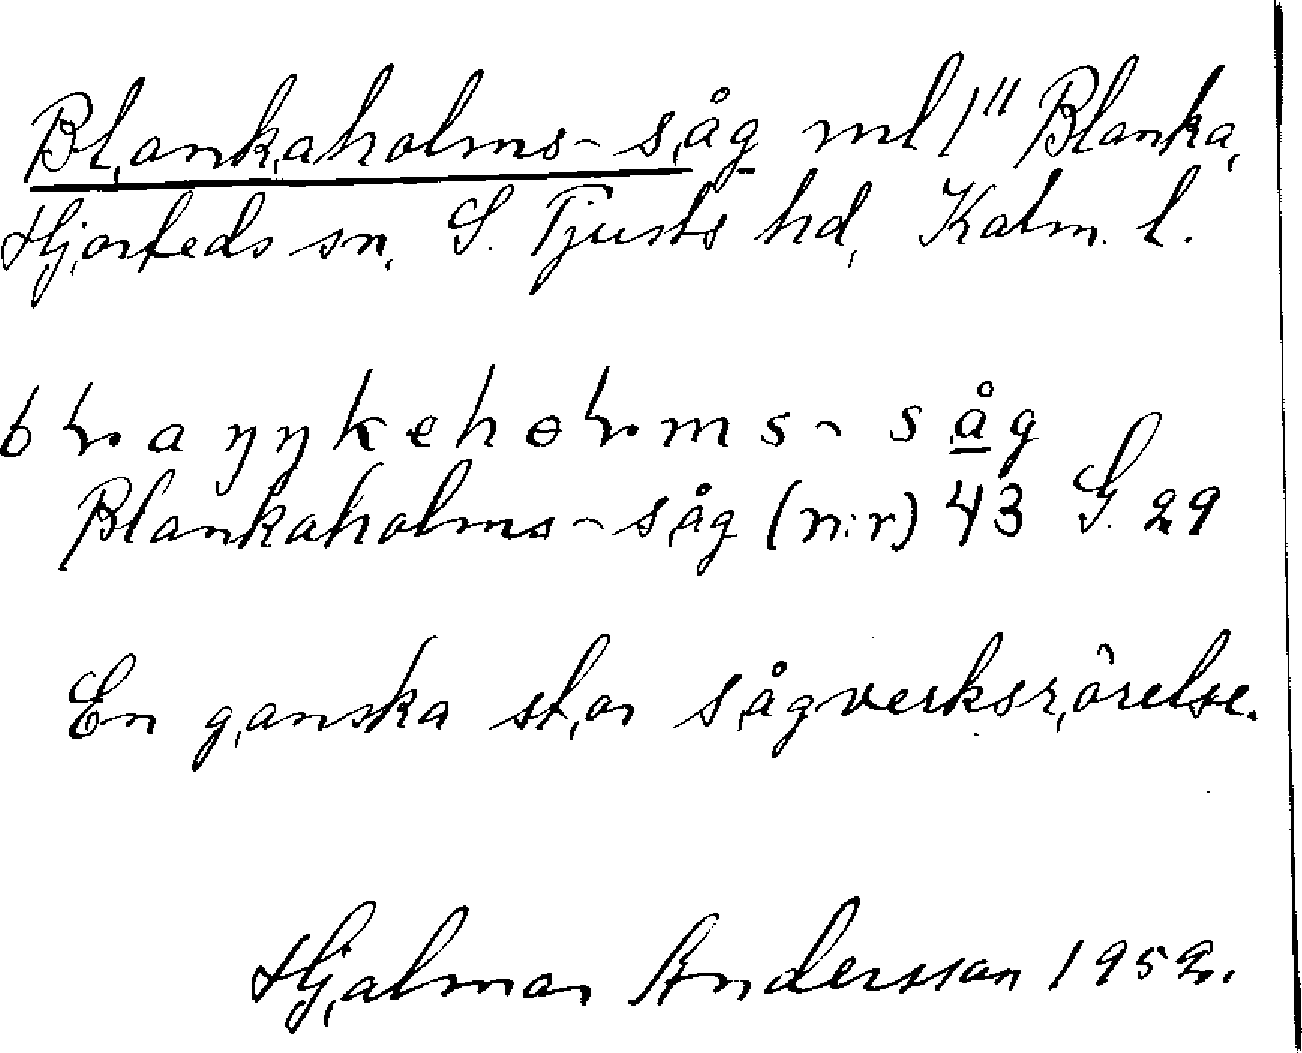 Blankaholms-såg ml 1" Blanka,
Hjorteds sn. S. Tjusts hd, Kalm. l.
blaŋŋkeholms-såg
Blankaholms-såg (n:r) 43 G. 29
En ganska stor sågverksrörelse.
Hjalmar Andersson 1952.